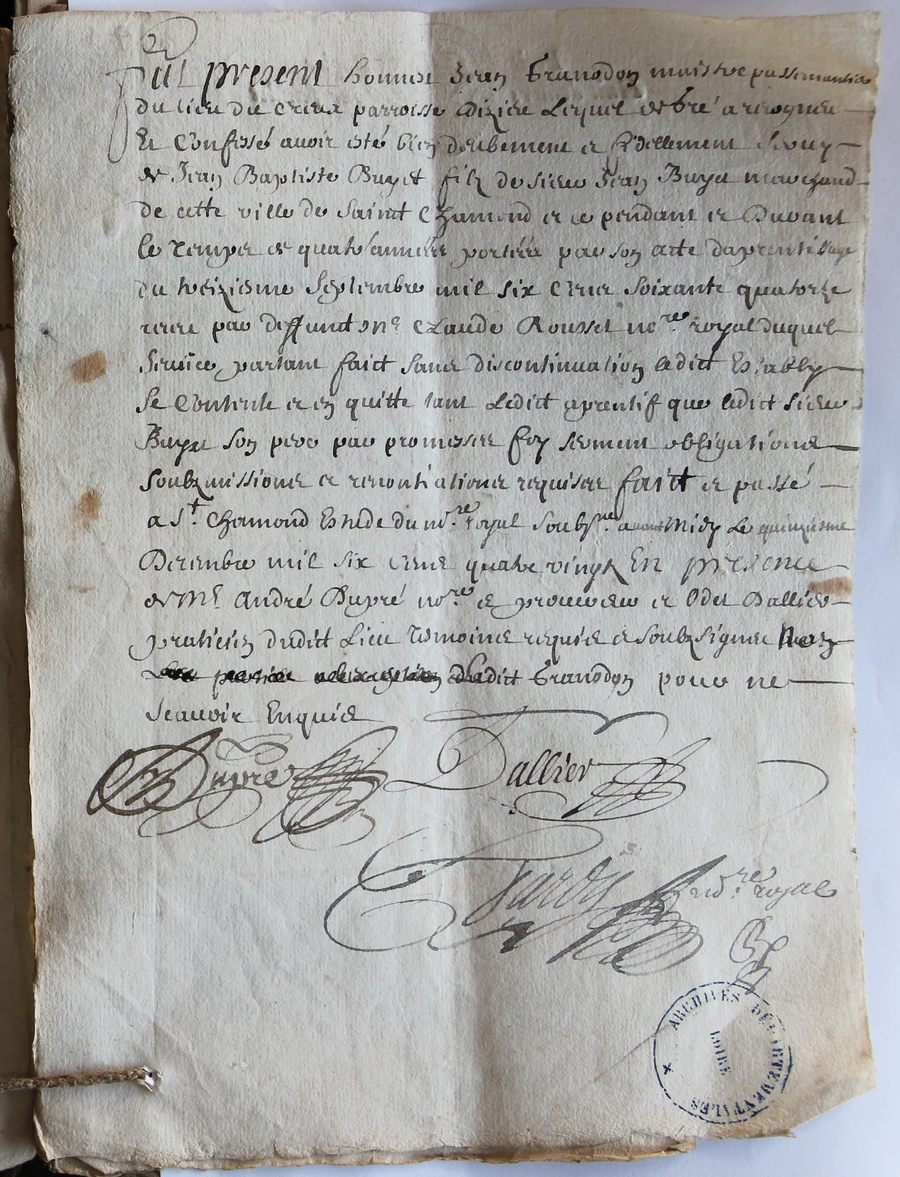 Fut present honneste Jean Granodon maistre passemantier
du lieu du Creux parroisse dizieu Lequel de gré a recognu
Et Confessé avoir esté bien deubement et fidellement servy
de Jean Baptiste Buyet filz de sieur Jean Buyet marchand
de cette ville de Saint Chamond et ce pendant et Durant
le temps de quatre années portées par son acte daprentissage
du treizieme Septembre mil six Cens soixante quatorze
receu par deffunt Me Claude Rousset nore royal duquel
Service partant faict sans discontinuation ledict Estably
se Contente et en quitte tant Ledict aprentif que ledict sieur
Buyet son pere par promesses foy serment obligations
soubzmissions et renontiations requises faict et passé
a St Chamond Estude du nore royal soubzne avant Midy Le quinzieme
Decembre mil six Cens quatre vingtz En presence
de Me André Dupré nore et procureur et Odet Dallier
praticien dudict Lieu tesmoins requis et soubzsignes Non
ledict Granodon pour ne
Scavoir Enquis
Dupré
Dallier
nore royal
ARCHIVES DÉPARTEMENTALES
LOIRE